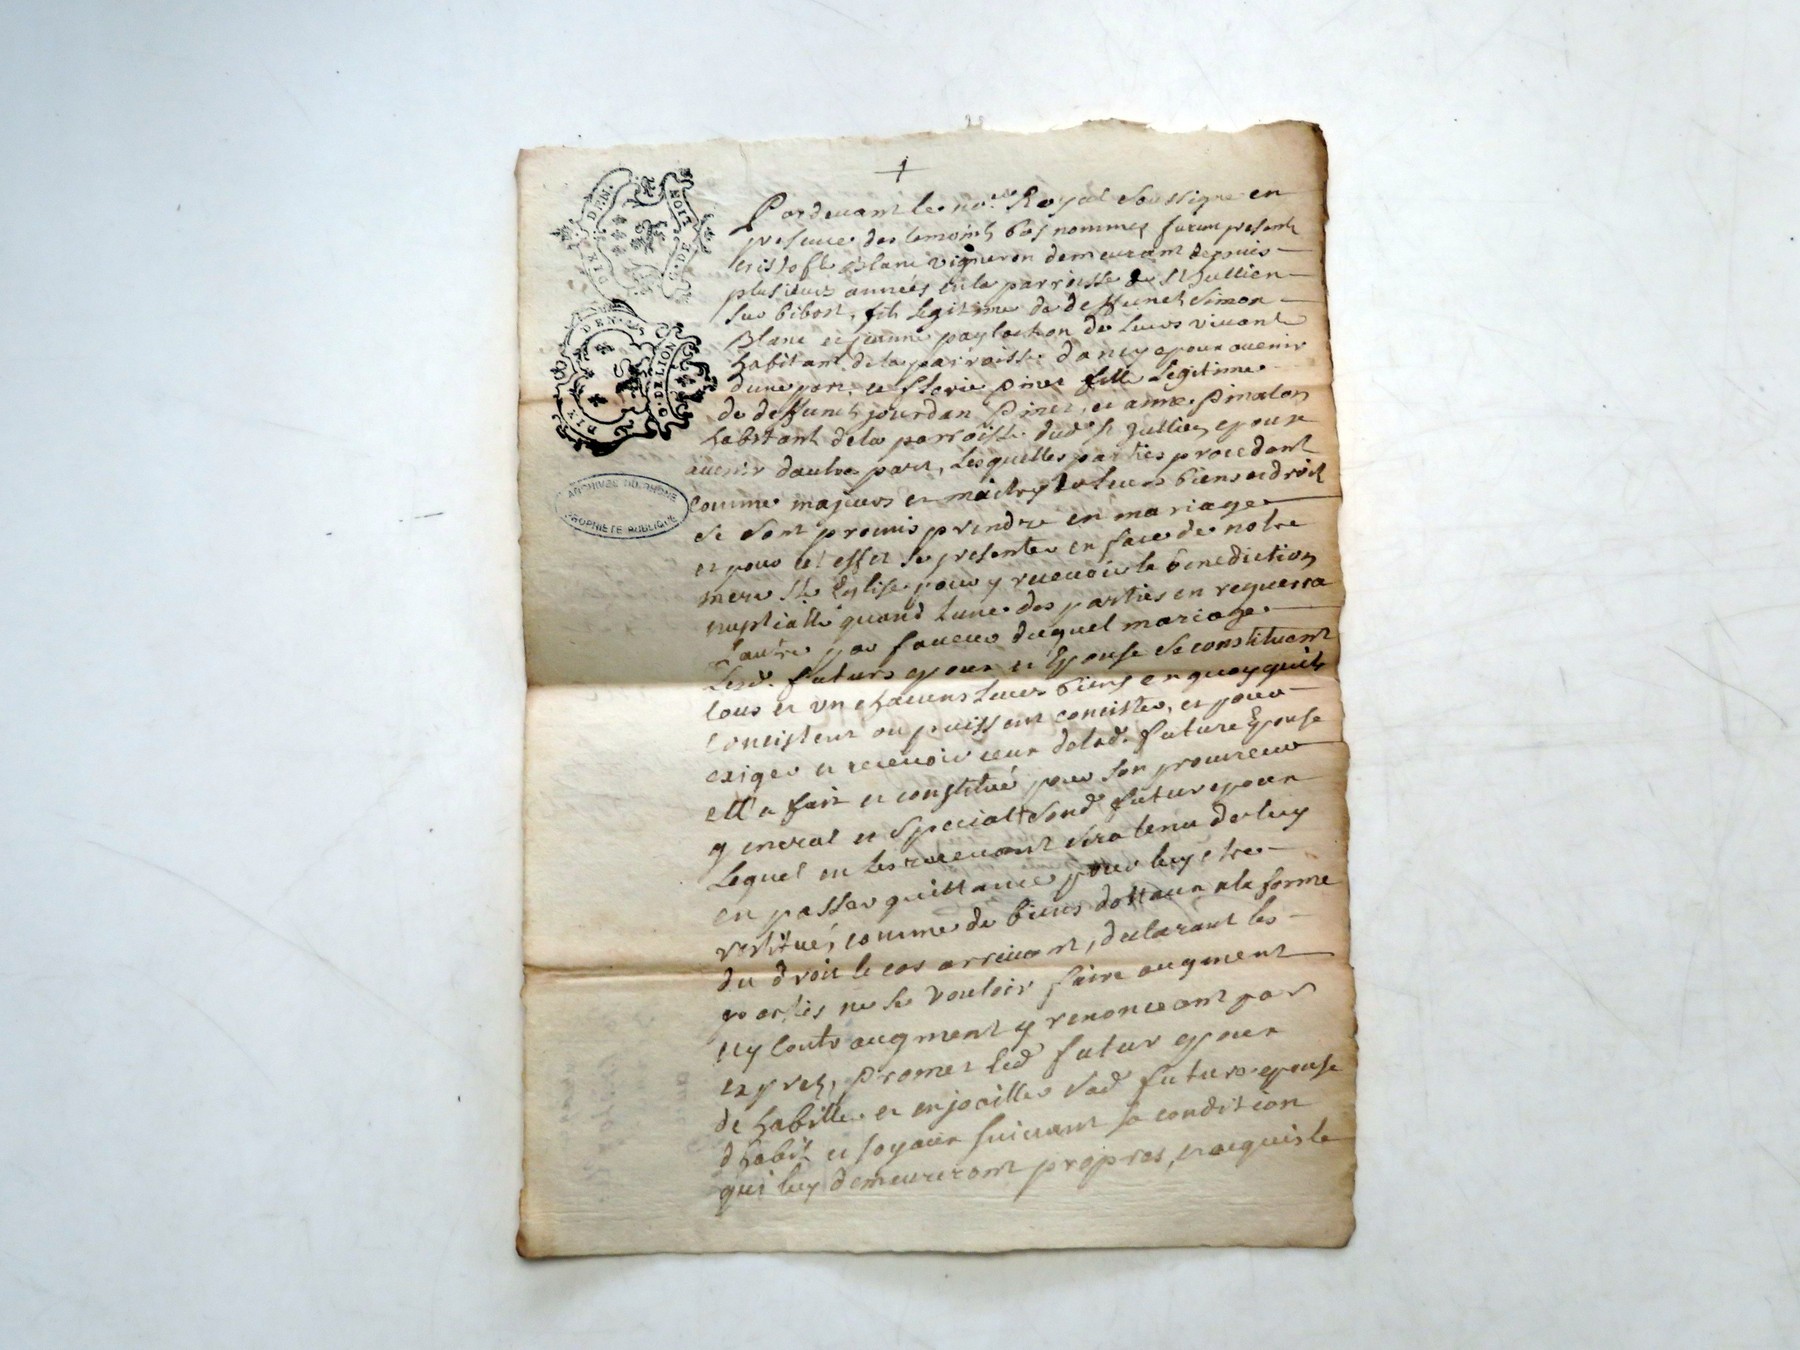 DIX DEN.
NOIT G. DE
DIX DEN.
G. DE LION
ARCHIVES DU RHONE
PROPRIETE PUBLIQUE
Pardevant le no.re Royal Soussigne en
presence des temoins bas nommes furent presents
cristofle Blanc vigneron demeurant depuis
plusieurs années en la parroisse de St Jullien
sur bibost, fils legitime de deffuncts Simon
Blanc et jeanne de leurs vivants
habitant de la parroisse dancy epoux avenir
dune part, et florie pinet fille Legitime
de deffuncts jourdan Pinet, et anne Pinaton
habitant de la parroisse dud. St Jullien epouse
avenir dautre part, Lesquelles parties procedant
comme majeurs et maitres de leurs biens et droits
se sont promis prendre en mariage
et pour cet effet se presenter en face de notre
mere Ste Eglise pour y recevoir la benediction
nuptialle quand lune des parties en requerra
Lautre, par faveur duquel mariage
Lesd. futurs epoux et Epouse se constituent
tous et un chacuns leurs biens en quoy quils
concistent ou puissent concister, et pour
exiger et recevoir ceux de lad. future Epouse
ell'a fait et constitué pour son procureur
general et special sond. futur epoux
Lequel en les recevant sera tenu de luy
en passer quittance pour luy etre
restitués comme de biens dottaux a la forme
du droit le cas arrivant, declarant les
parties ne se vouloir faire augment
ny contr augment y renonceant par
expres, promet led. futur epoux
de habiller et enjoailler sad. future epouse
dhabits et joyaux suivant sa condition
qui luy demeureront propres, et acquis le